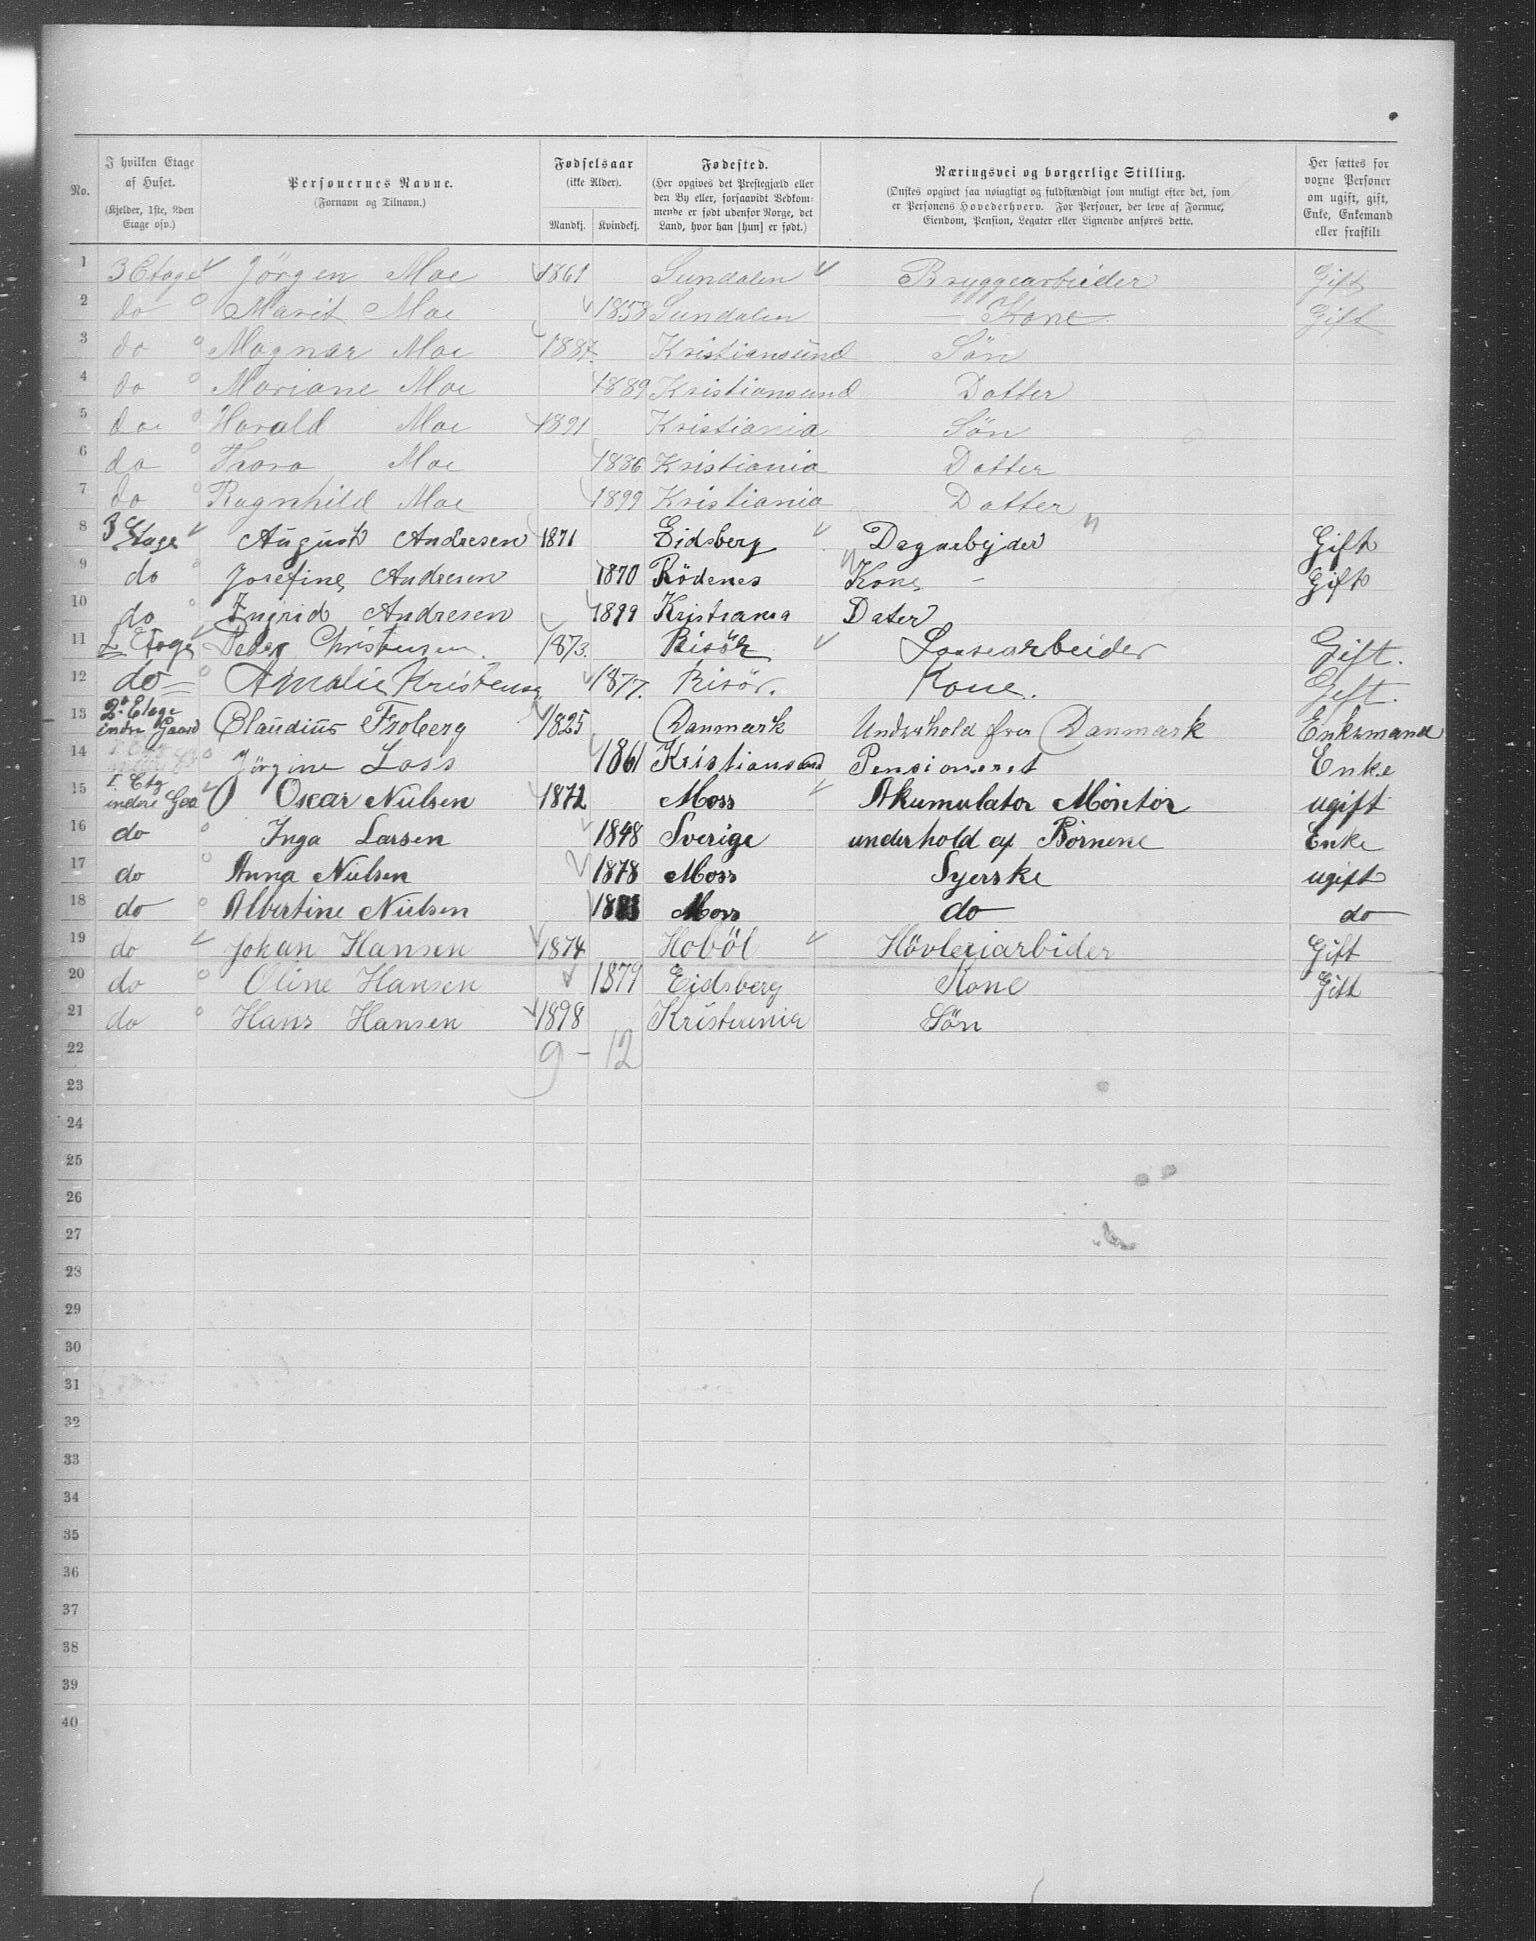 No.
I hvilken Etage af Huset. (Kjelder, 1ste, 2den Etage osv.)
Personernes Navne. (Fornavn og Tilnavn.)
Fødselsaar (ikke Alder). Mandkj. Kvindekj.
Fødested. (Her opgives det Prestegjæld eller den By eller, forsaavidt Vedkommende er født udenfor Norge, det Land, hvor han [hun] er født.)
Næringsvei og borgerlige Stilling. (Ønskes opgivet saa nøiagtigt og fuldstændigt som muligt efter det, som er Personens Hovederhverv. For Personer, der leve af Formue, Eiendom, Pension, Legater eller Lignende anføres dette.
Her sættes for voxne Personer om ugift, gift, Enke, Enkemand eller fraskilt
1 3 Etage Jörgen Moe 1861 Sundalen Bryggearbeider Gift
2 do Marit Moe 1858 Sundalen Kone Gift
3 do Magnar Moe 1887 Kristiansund Sön
4 do Mariane Moe 1889 Kristiansund Datter
5 do Harald Moe 1891 Kristiania Sön
6 do Thora Moe 1886 Kristiania Datter
7 do Ragnhild Moe 1899 Kristiania Datter
8 3 Etage August Andresen 1871 Eidsberg Dagarbejder Gift
9 do Josefine Andresen 1870 Rödenes Kone Gift
10 do Ingrid Andresen 1899 Kristiania Dater
11 2 Etage Peder Christensen. 1873. Risör Lossearbeider Gift.
12 do Amalie Kristensen 1877. Risör. Kone. Gift.
13 2. Etage indre Gaard Claudius Froberg 1825 Danmark Underhold fra Danmark Enkemand
14 Jörgine Loss 1861 Kristiansand Pensioneret Enke
15 1. Etg indere Gaa Oscar Nielsen 1872 Moss Akumulator Montör ugift
16 do Inga Larsen 1848 Sverige underhold af Börnene Enke
17 do Anna Nielsen 1878 Moss Syerske ugift
18 do Albertine Nielsen Moss do do
19 do Johan Hansen 1874 Hoböl Hövleriarbider Gift
20 do Oline Hansen 1879 Eidsberg Kone Gift
21 do Hans Hansen 1898 Kristiania Sön
22 9 - 12
23
24
25
26
27
28
29
30
31
32
33
34
35
36
37
38
39
40